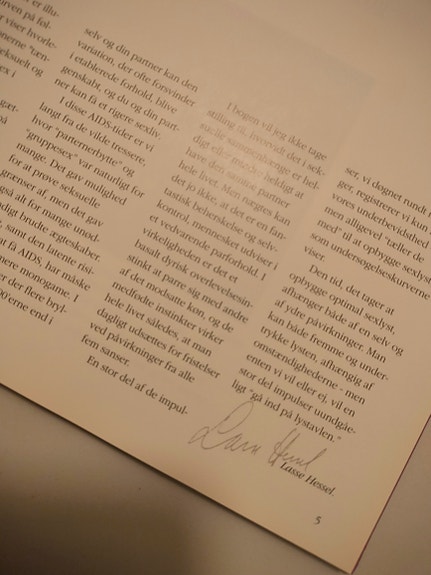 er illu-
urven på føl-
r viser hvorle-
nnerne "tæn-
seksuelt og
ex i
gær-
på
selv og din partner kan den
variation, der ofte forsvinder
i etablerede forhold, blive
genskabt, og du og din part-
ner kan få et rigere sexliv.
I disse AIDS-tider er vi
langt fra de vilde tressere,
hvor "partnerbytte" og
"gruppesex" var naturligt for
mange. Det gav mulighed
for at prøve seksuelle
grænser af, men det gav
også alt for mange unød-
digt brudte ægteskaber.
, samt den latente risi-
at få AIDS, har måske
mere monogame. I
er der flere bryl-
0'erne end i
I bogen vil jeg ikke tage
stilling til, hvorvidt det i sek-
suelle sammenhænge er hel-
digt eller mindre heldigt at
have den samme partner
hele livet. Men nægtes kan
der jo ikke, at det er en fan-
tastisk beherskelse og selv-
kontrol, mennesket udviser i
et vedvarende parforhold. I
virkeligheden er det et
basalt dyrisk overlevelsesin-
stinkt at parre sig med andre
af det modsatte køn, og de
medfødte instinkter virker
hele livet således, at man
dagligt udsættes for fristelser
ved påvirkninger fra alle
fem sanser.
En stor del af de impul-
ser, vi døgnet rundt
ger, registrerer vi kun
vores underbevidsthed
men alligevel "tæller de
med" til at opbygge sexlyst
som undersøgelseskurverne
viser.
Den tid, det tager at
opbygge optimal sexlyst,
afhænger både af en selv og
af ydre påvirkninger. Man
kan både fremme og under-
trykke lysten, afhængig af
omstændighederne - men
enten vi vil eller ej, vil en
stor del impulser uundgåe-
ligt "gå ind på lystavlen."
Lasse Hessel.
5